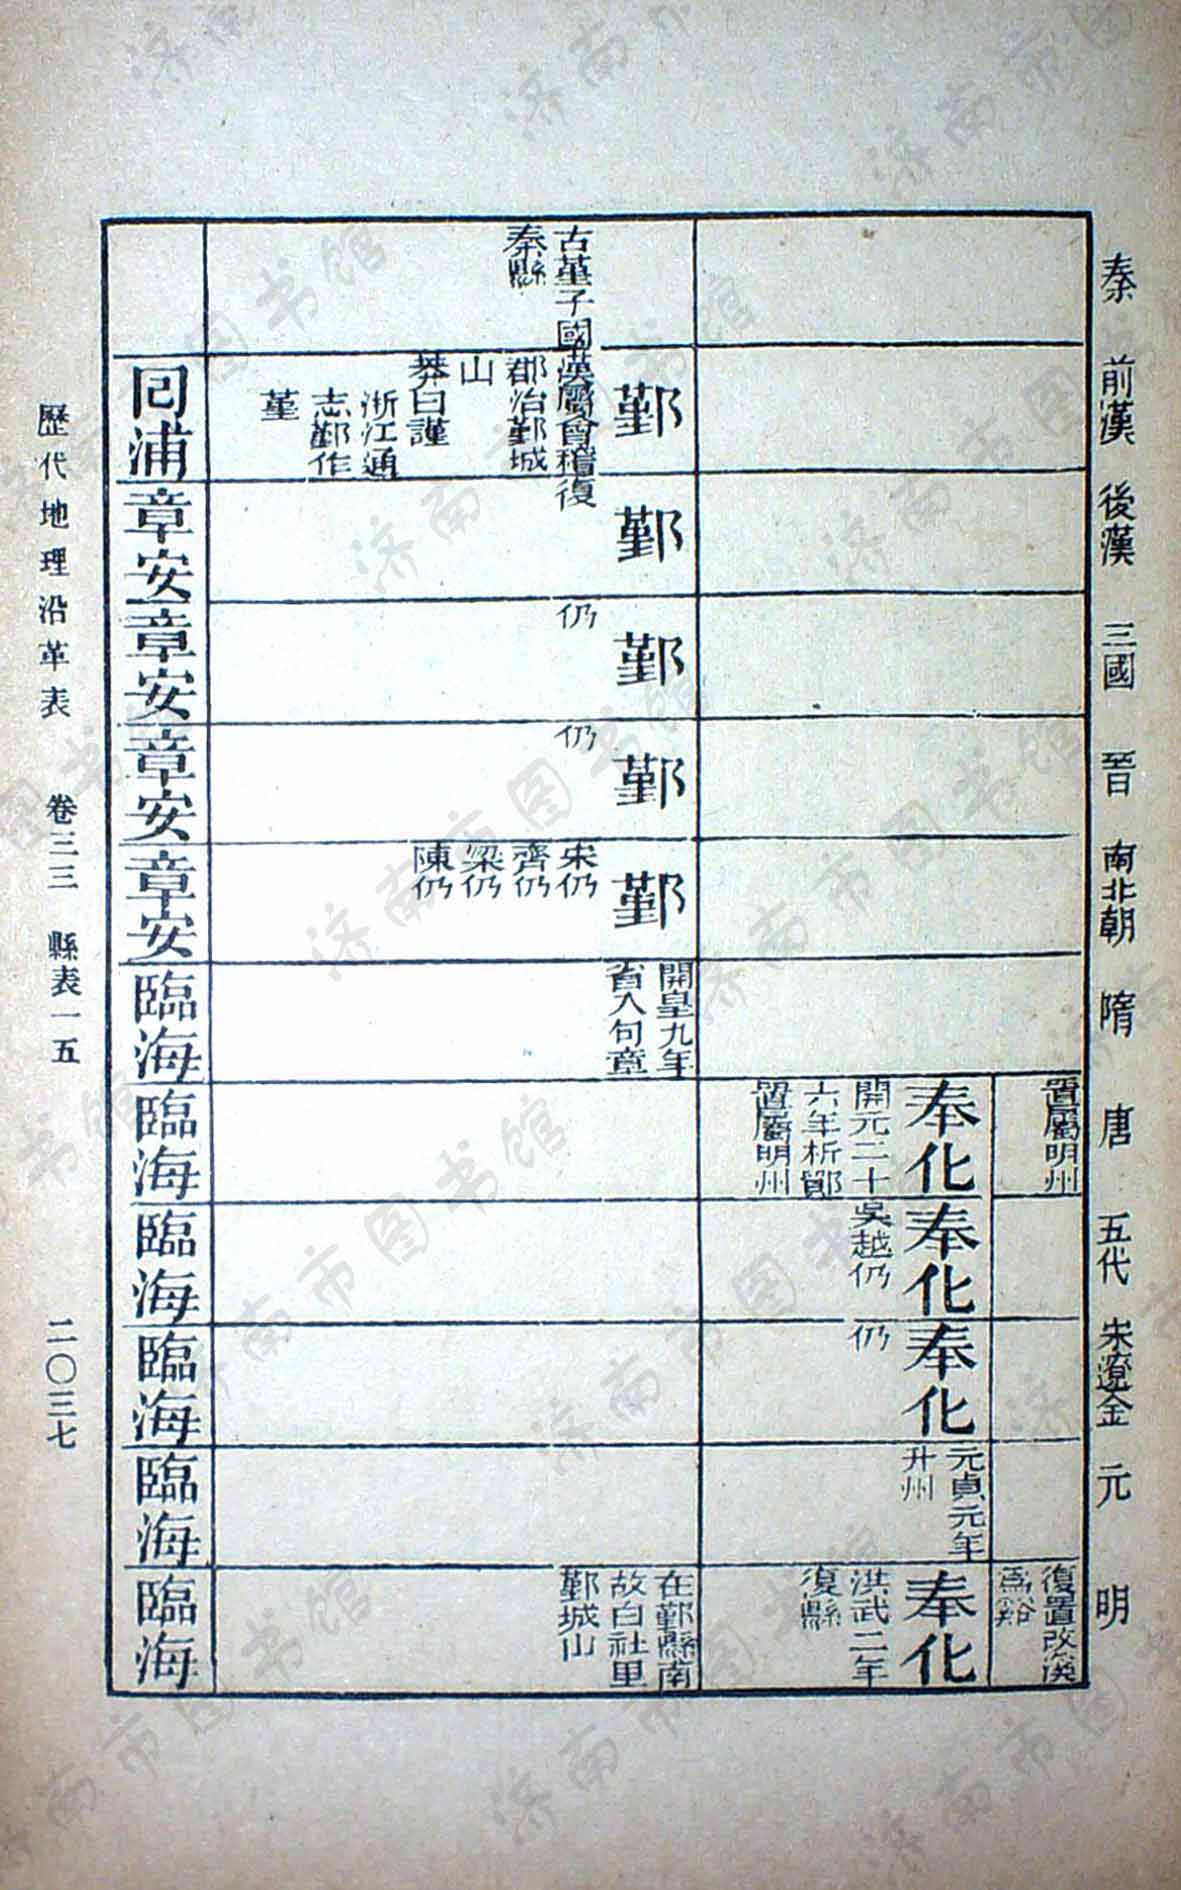 秦
前漢
後漢
三國
晉
南北朝
隋
唐
五代
宋遼金
元
明
置屬明州
復置改漢
奉化
開元二十
六年析鄮
置屬明州
奉化
吳越仍
奉化
仍
元貞元年
升州
奉化
洪武二年
復縣
古堇子國
秦縣
鄞
漢屬會稽復
郡治鄞城
山
莽曰謹
浙江通
志鄞作
堇
鄞
鄞
仍
鄞
仍
鄞
宋仍
齊仍
梁仍
陳仍
開皇九年
省入句章
在鄞縣南
故白社里
鄞城山
回浦
章安
章安
章安
章安
臨海
臨海
臨海
臨海
臨海
臨海
歷代地理沿革表 卷三三 縣表一五 二〇三七
济南市图书馆